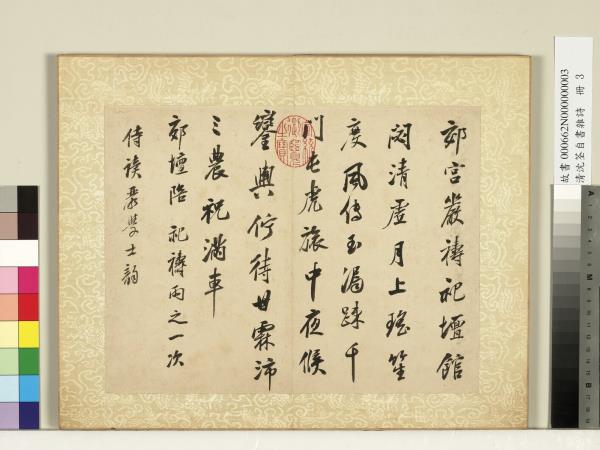 郊宮嚴禱祀壇館
閟清虛月上瑤笙
度風傳玉漏疎千
門屯虎旅中夜候
鑾輿佇待甘霖沛
三農祝滿車
郊壇陪祀禱雨之一次
侍讀學士韵
故書000662N000000003
清沈荃自書雜詩 冊 3